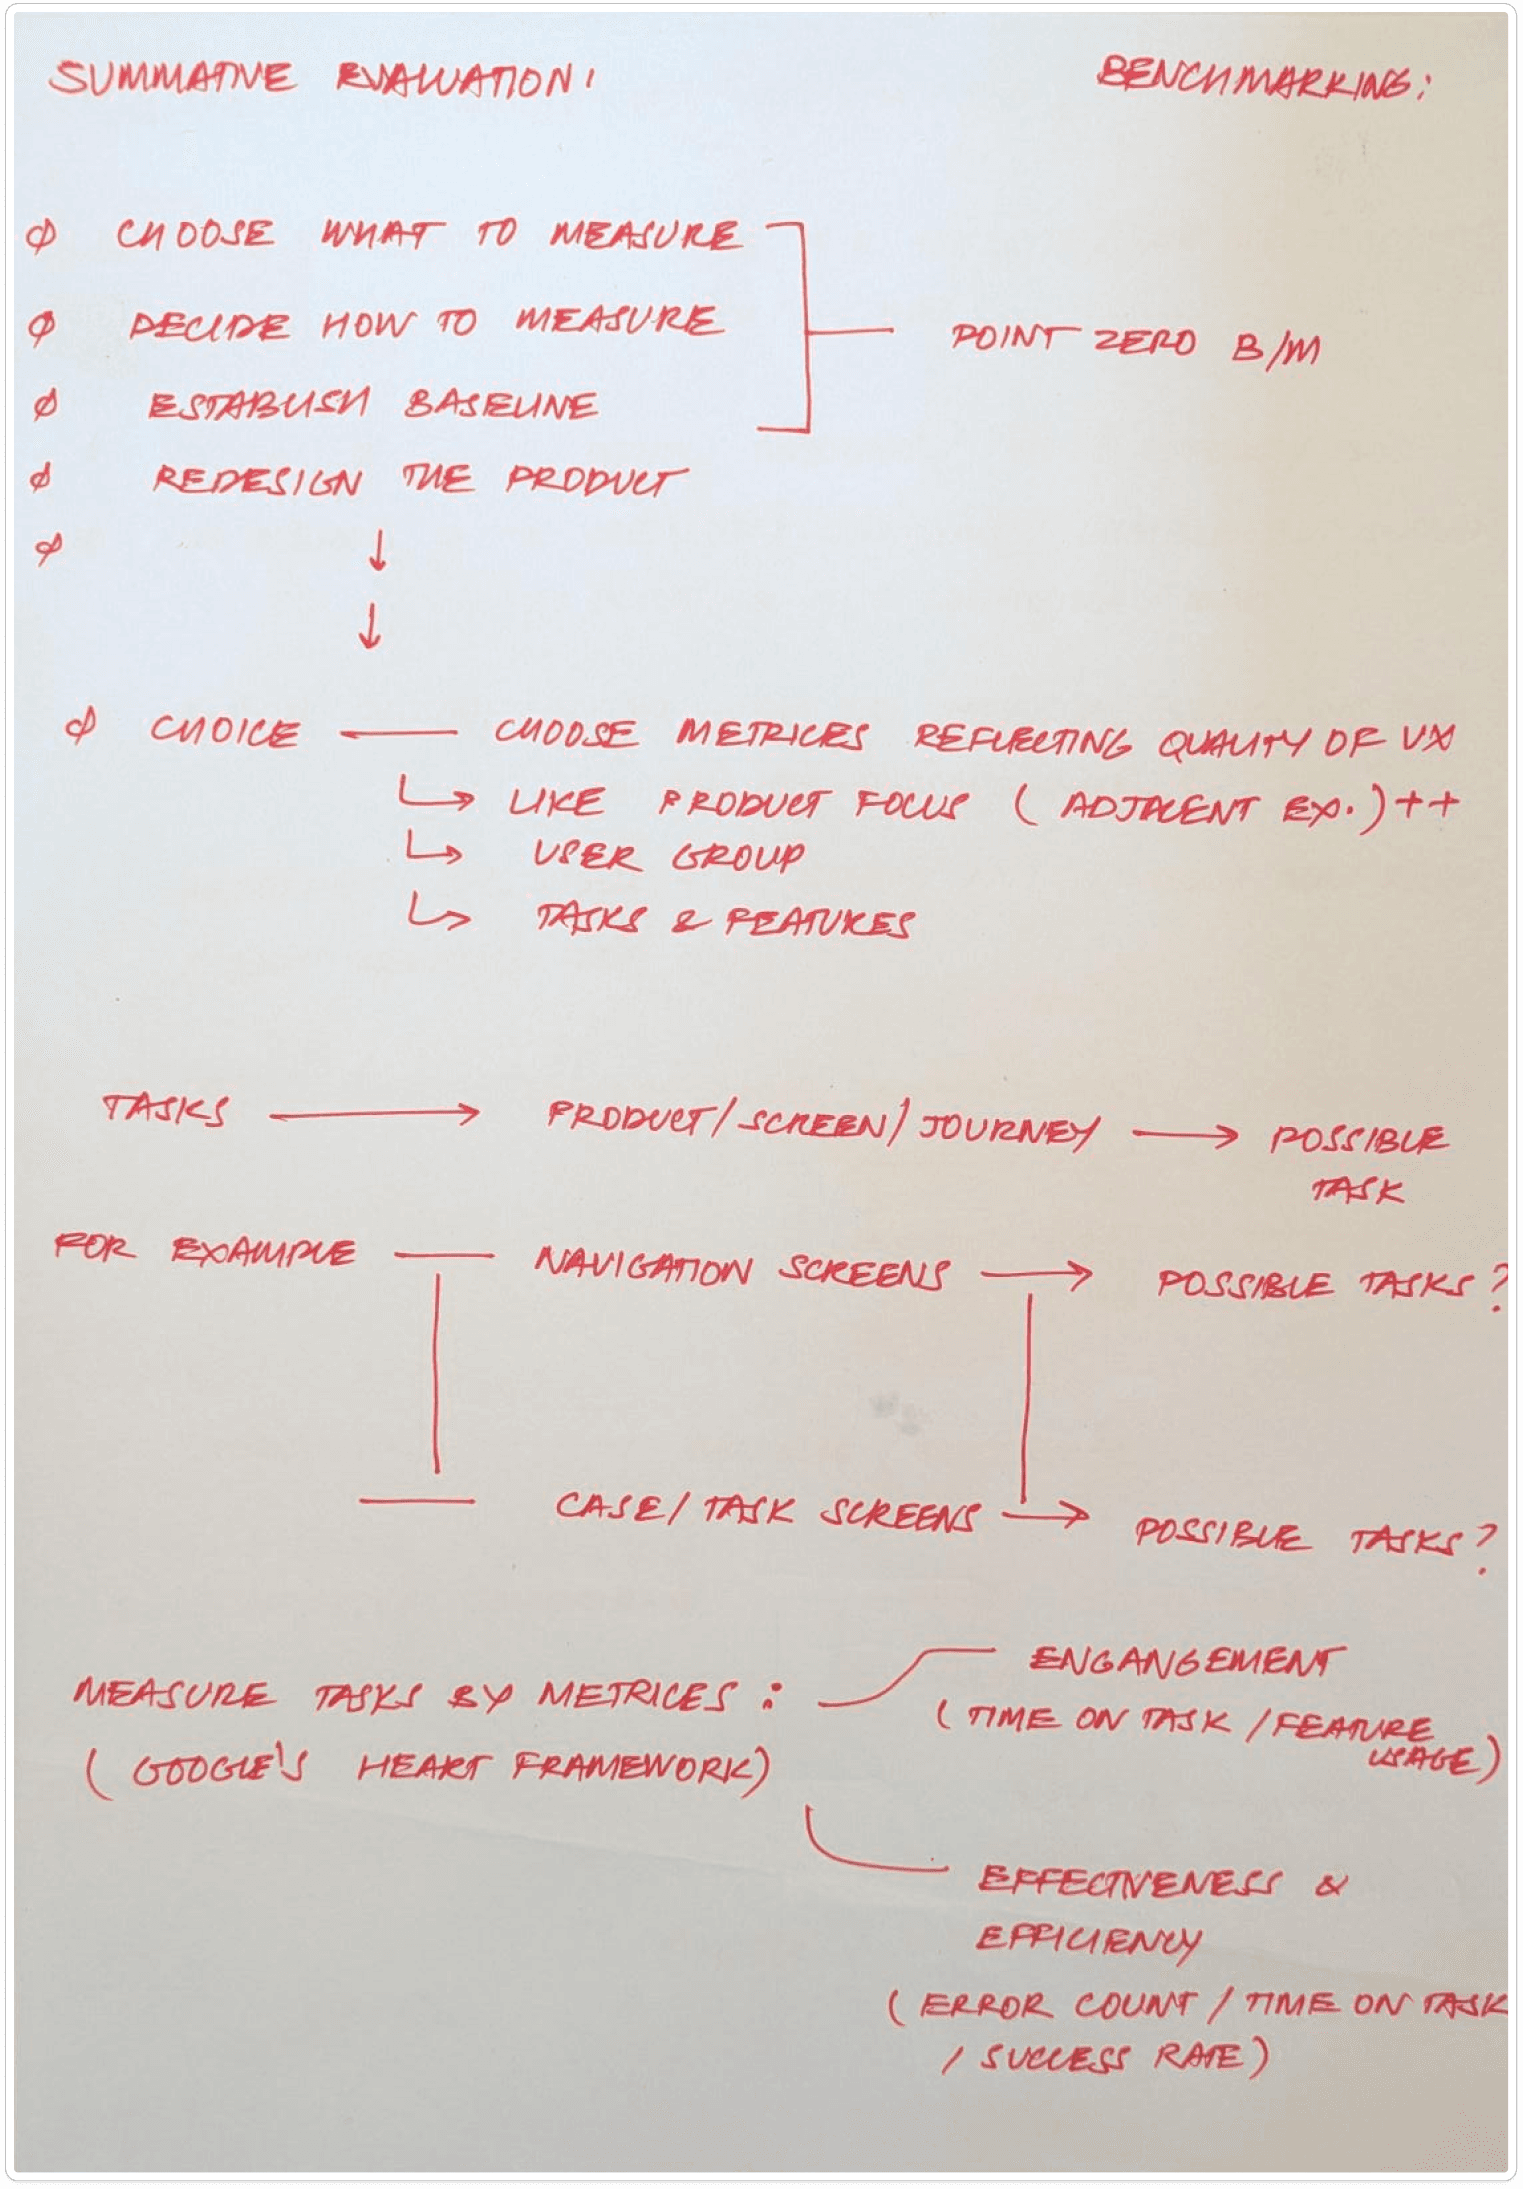 SUMMATIVE EVALUATION:
BENCHMARKING:
φ CHOOSE WHAT TO MEASURE
φ DECIDE HOW TO MEASURE
POINT ZERO B/M
φ ESTABLISH BASELINE
φ REDESIGN THE PRODUCT
φ ↓
↓
φ CHOICE — CHOOSE METRICES REFLECTING QUALITY OF UX
↳ LIKE PRODUCT FOCUS ( ADJACENT EX. ) ++
↳ USER GROUP
↳ TASKS & FEATURES
TASKS → PRODUCT/SCREEN/JOURNEY → POSSIBLE
TASK
FOR EXAMPLE — NAVIGATION SCREENS → POSSIBLE TASKS?
— CASE/TASK SCREENS → POSSIBLE TASKS?
MEASURE TASKS BY METRICES :
( GOOGLE'S HEART FRAMEWORK)
ENGANGEMENT
( TIME ON TASK /FEATURE
USAGE)
EFFECTIVENESS &
EFFICIENCY
( ERROR COUNT / TIME ON TASK
/ SUCCESS RATE)